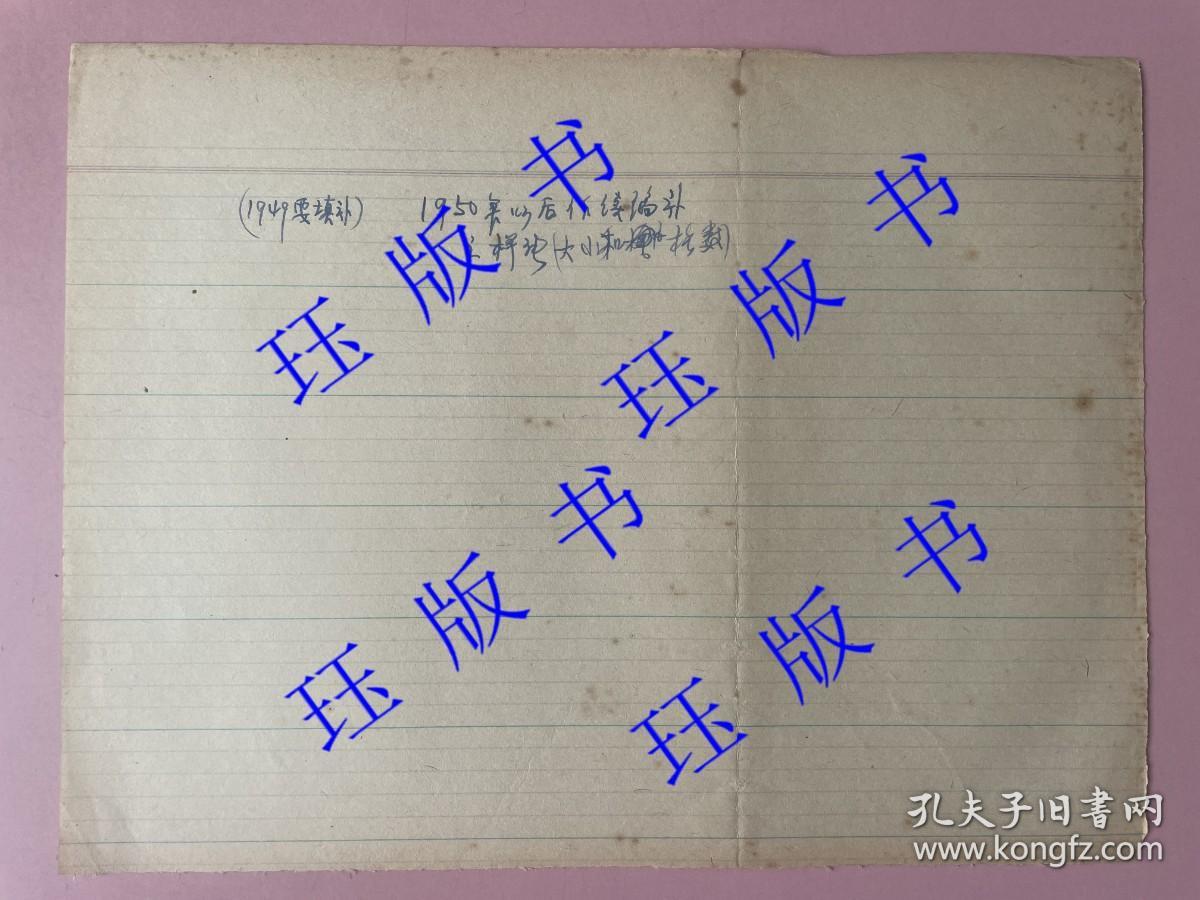 (1949要填补) 1950年以后作续编补
样张(大小和格数)
珏版书
珏版书
珏版书
珏版书
孔夫子旧书网
www.kongfz.com